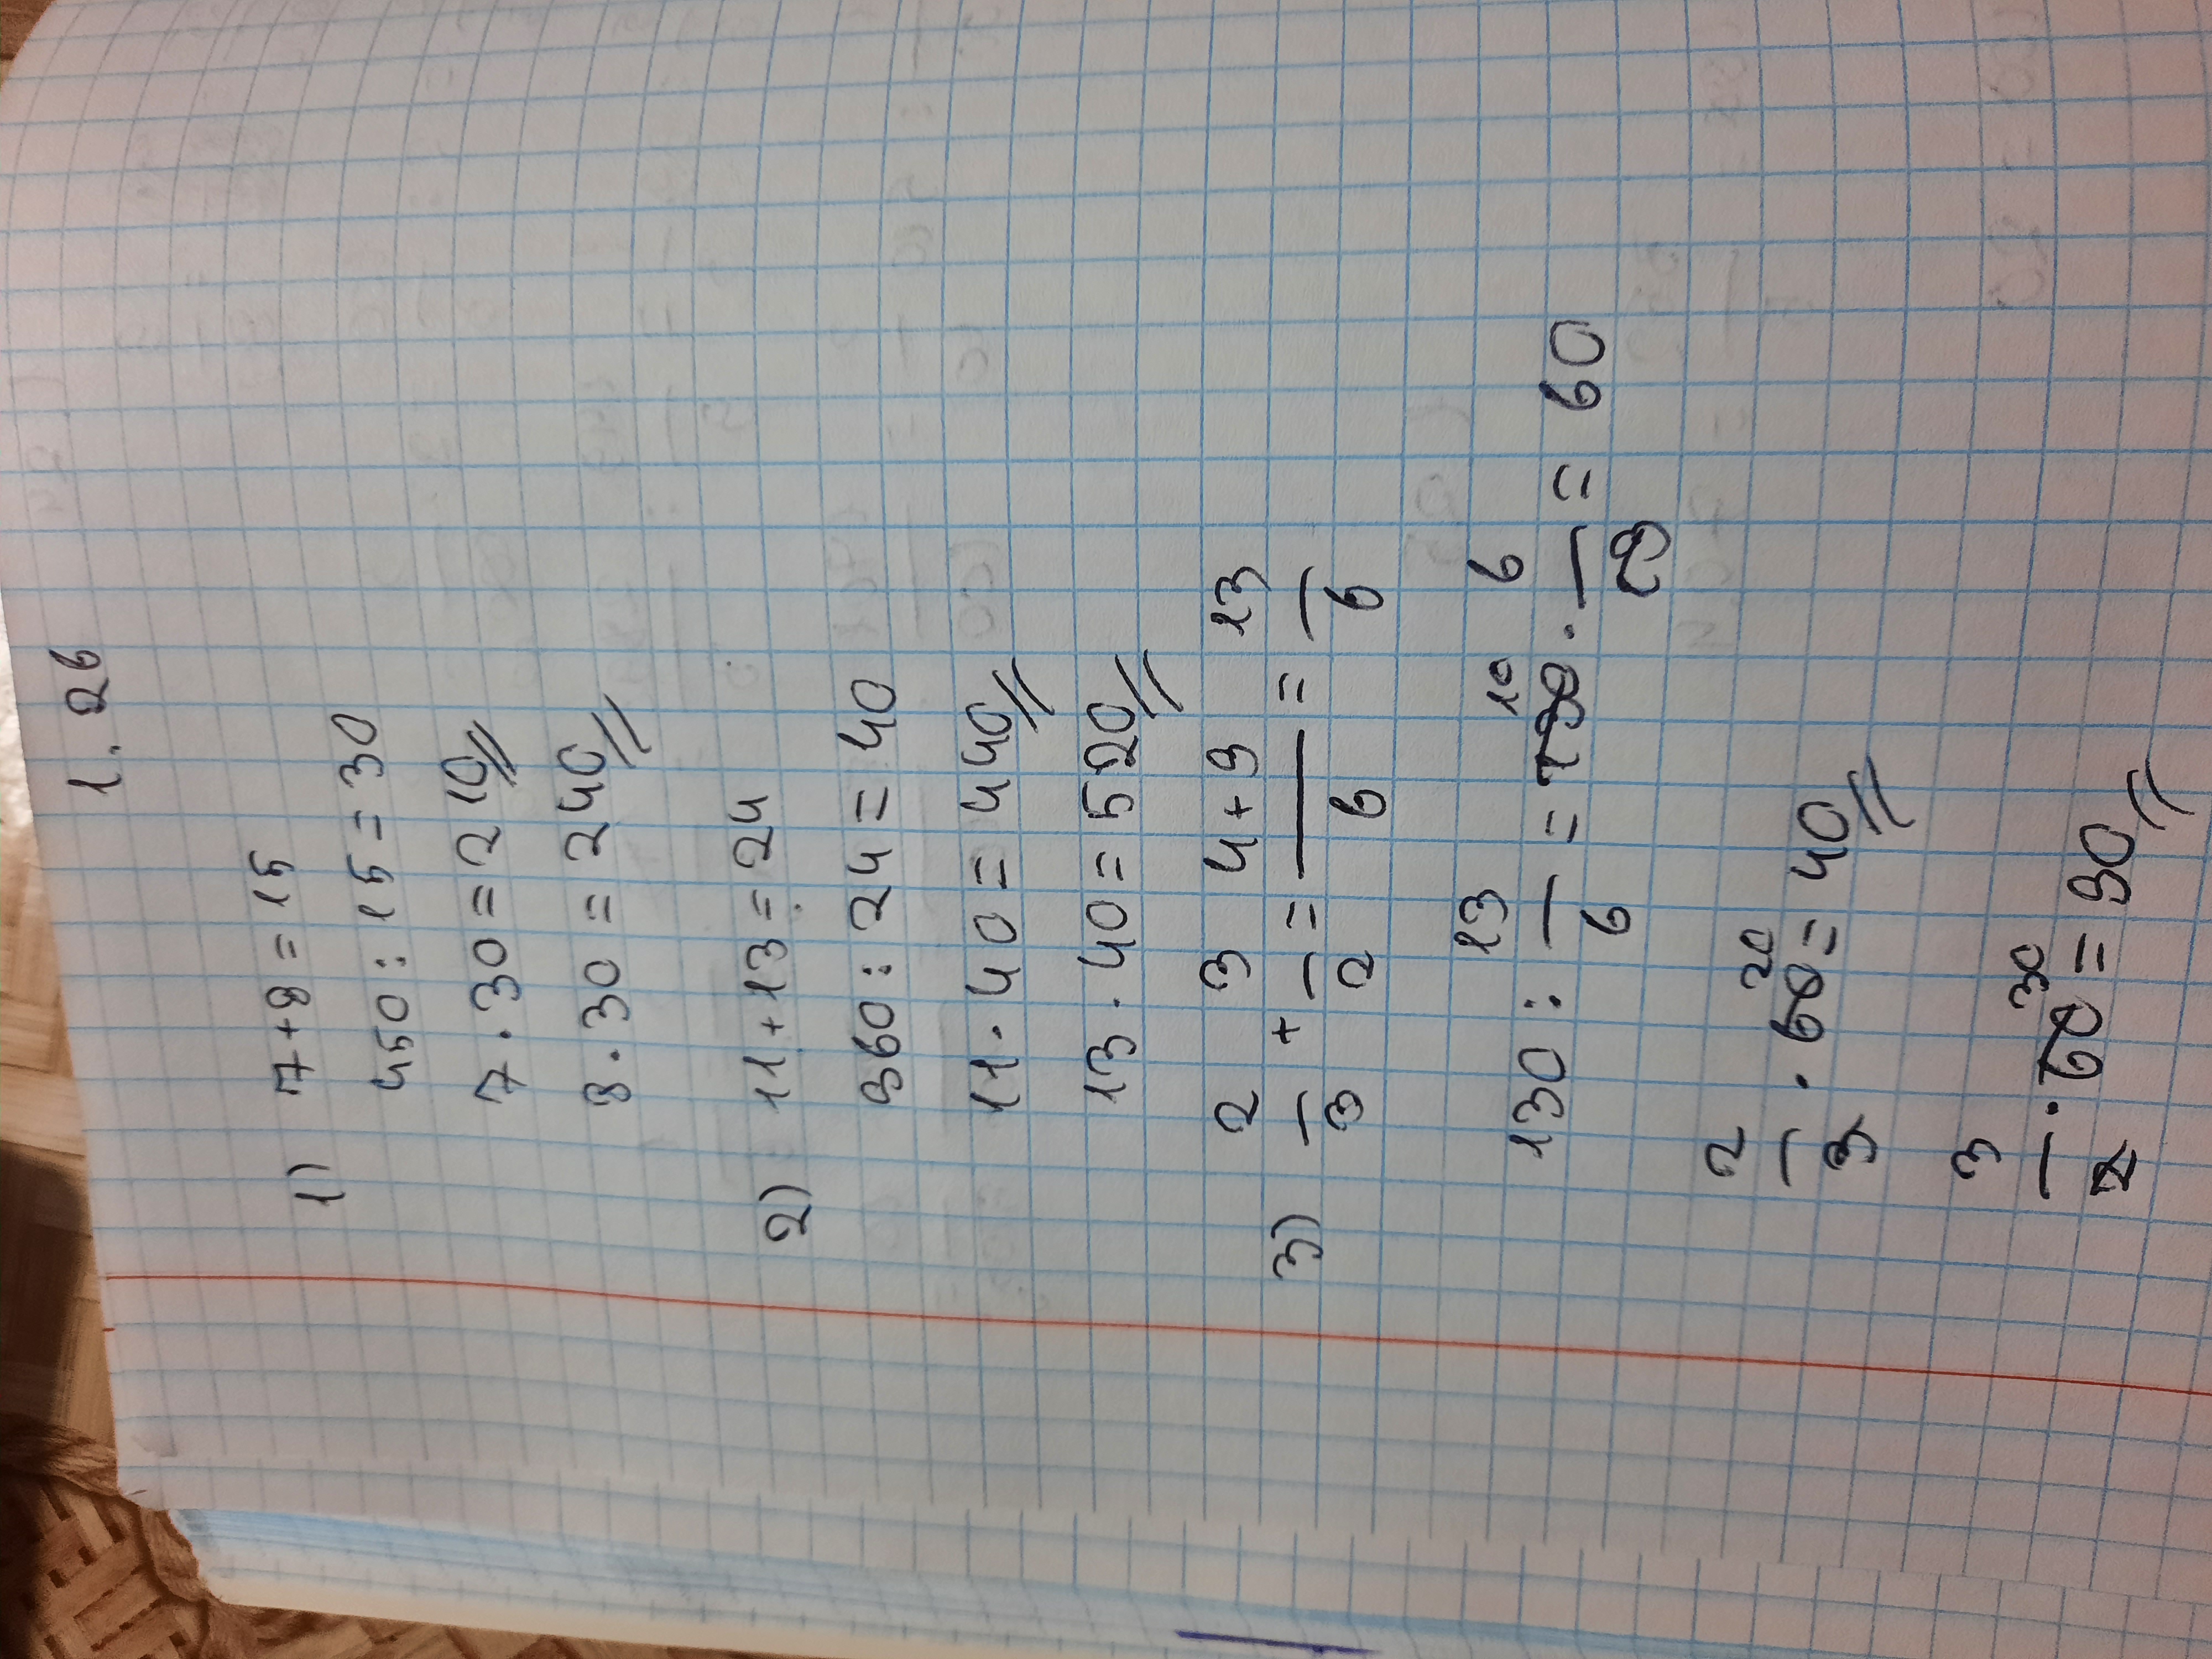 1.26
1) 7+8=15
450:15=30
7·30=210
8·30=240
2) 11+13=24
960:24=40
11·40=440
13·40=520
3) 2/3 + 3/2 = 4+9/6 = 13/6
130 : 13/6 = 130 10 · 6/13 = 60
2/3 · 60 20 = 40
3/2 · 60 30 = 90